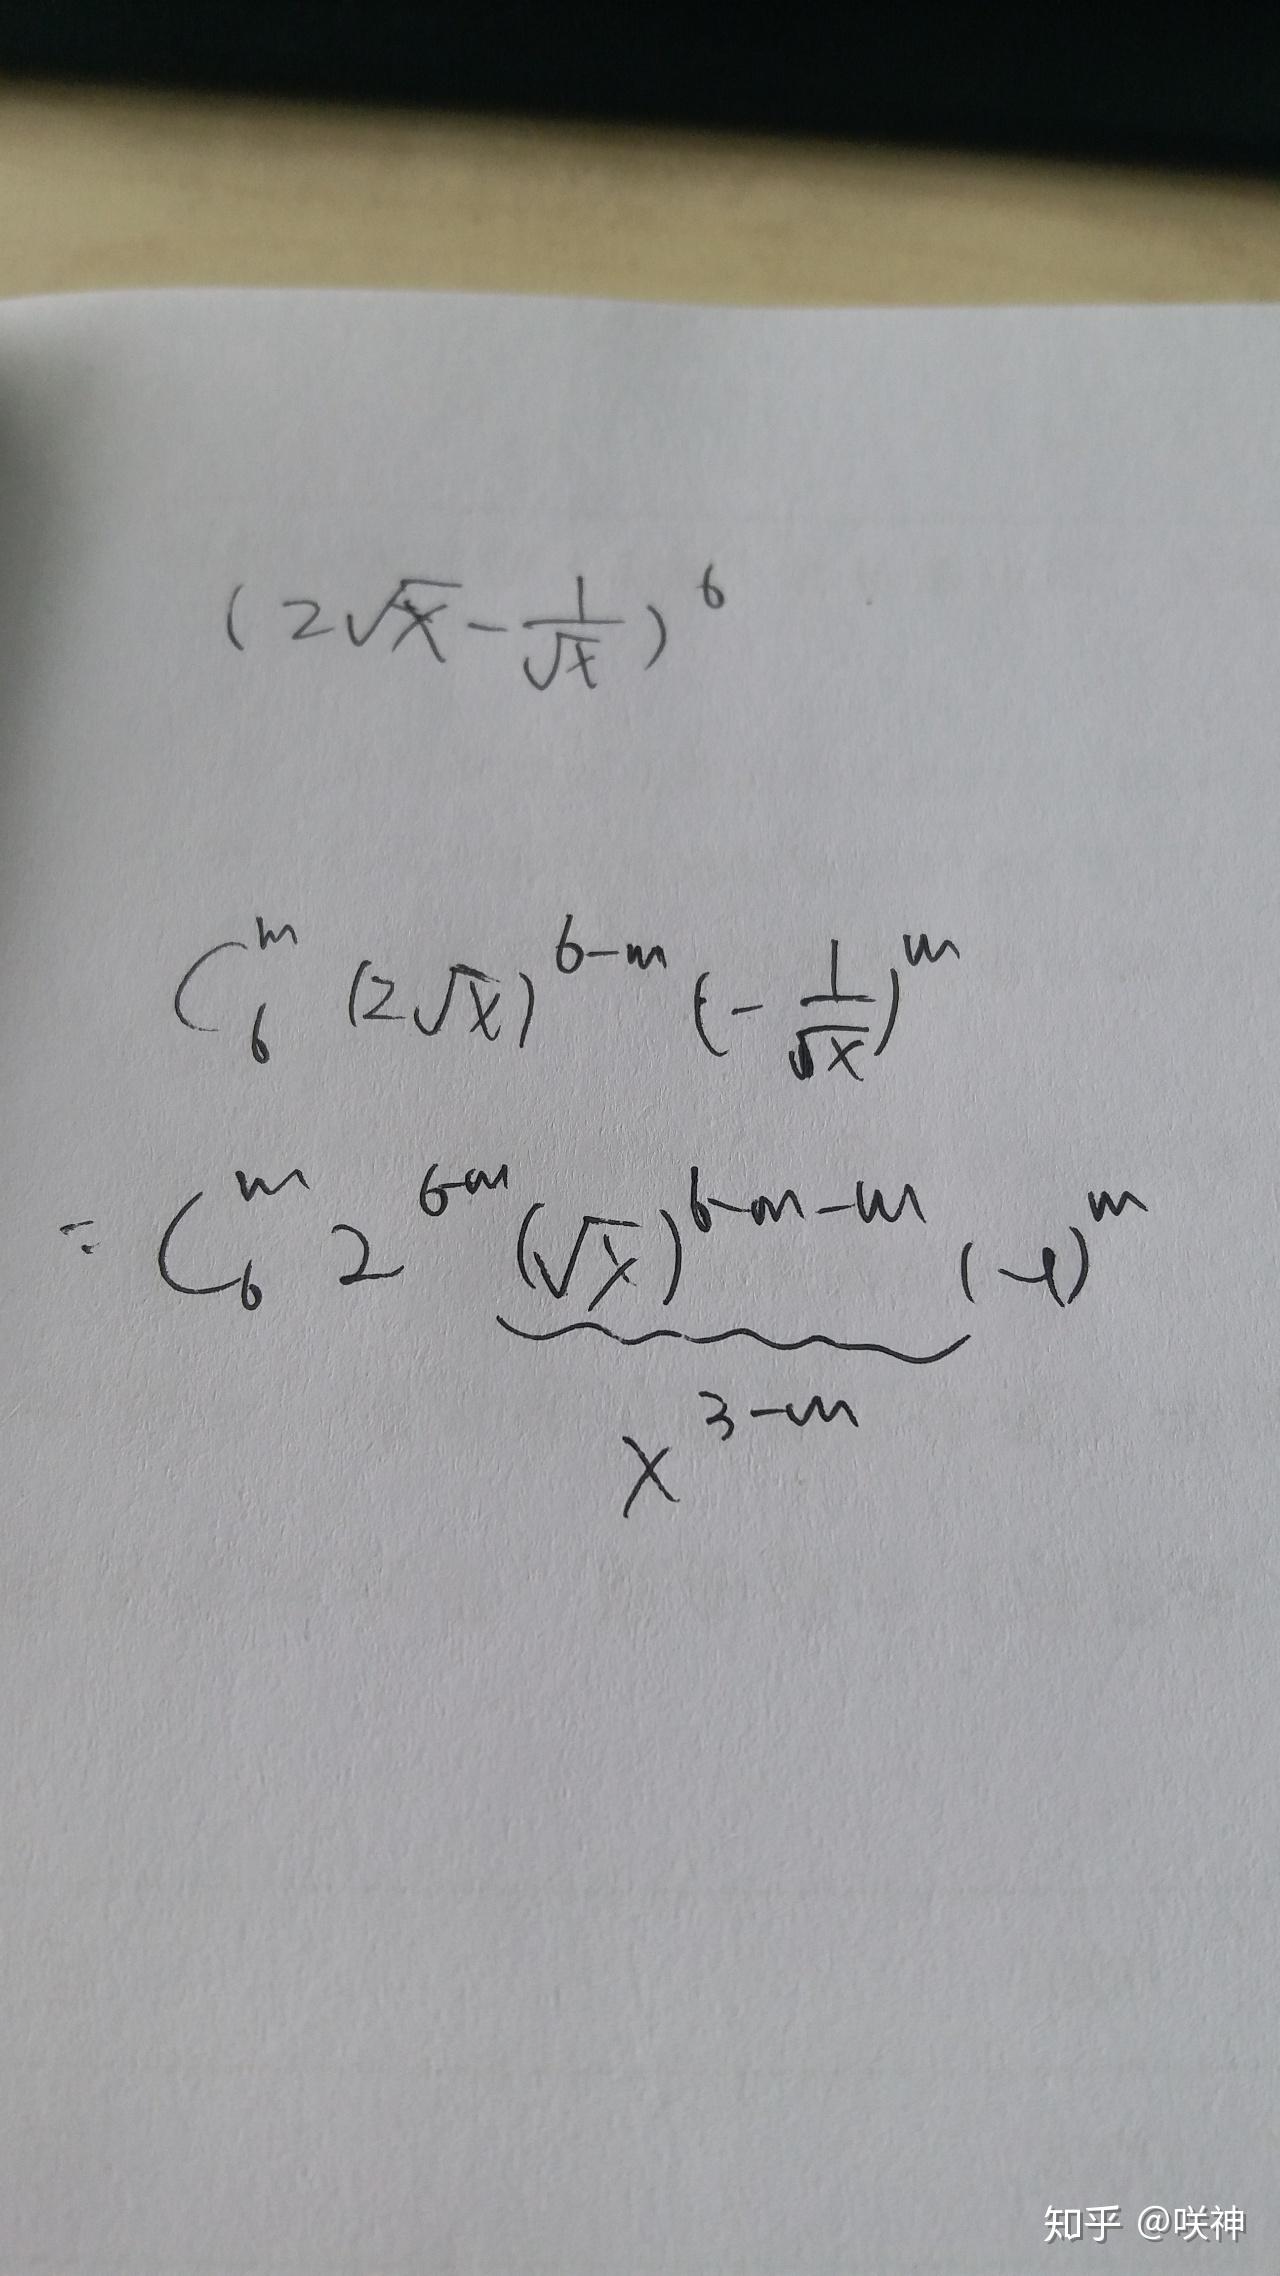 (2√x - 1/√x)^6
C_6^m (2√x)^{6-m} (-1/√x)^m
= C_6^m 2^{6-m} (√x)^{6-m-m} (-1)^m
x^{3-m}
知乎 @咲神